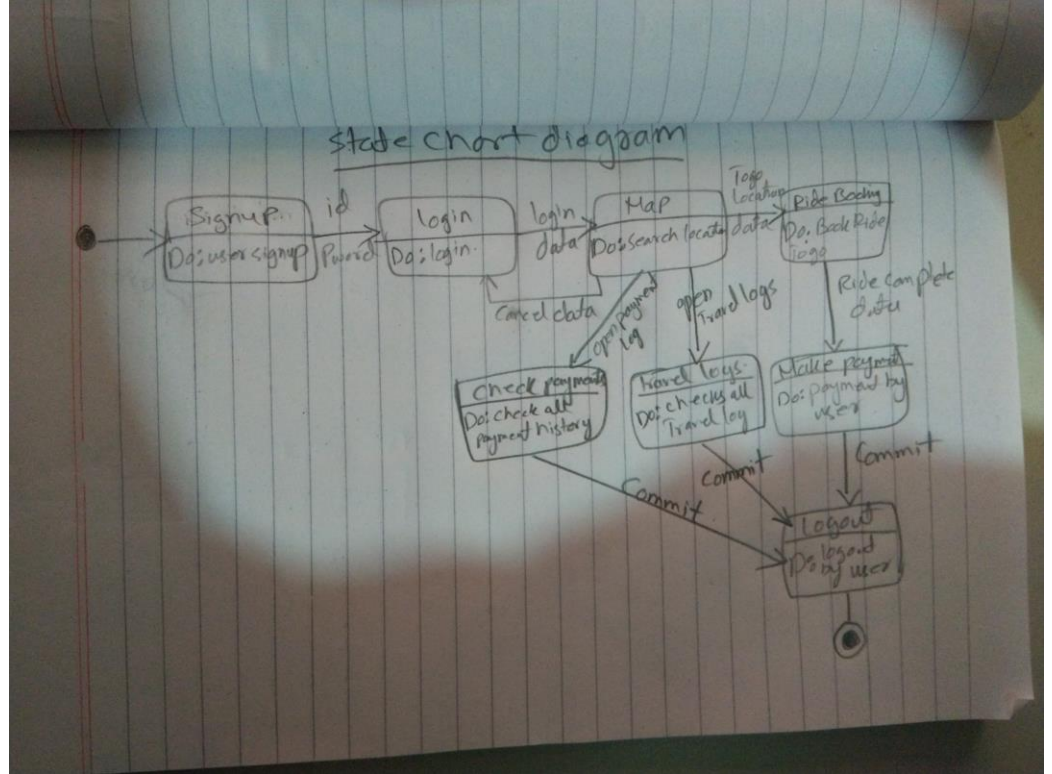 State chart diagram
Signup
Do: user signup
id
Pword
login
Do: login.
login
data
Map
Do: search locatn
Togo
Location
data
Ride Bookng
Do: Book Ride
Togo
Cancel data
open payment
log
open
Travel logs
Ride complete
data
Check payments
Do: check all
payment history
Travel logs.
Do: checks all
Travel log
Make payment
Do: payment by
user
Commit
Commit
Commit
Logout
Do: logout
by user